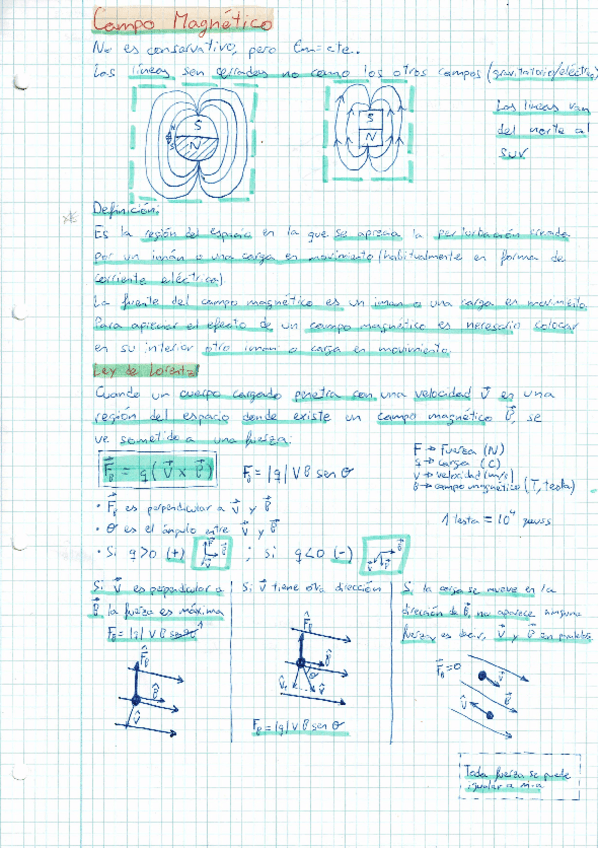 Campo Magnético
No es conservativo, pero Em=cte.
Las líneas son cerradas no como los otros campos (gravitatorio/eléctrico)
Las líneas van
del norte al
sur
S
N
S
N
Definición:
Es la región del espacio en la que se aprecia la perturbación creada
por un imán o una carga en movimiento (habitualmente en forma de
corriente eléctrica)
La fuente del campo magnético es un iman o una carga en movimiento.
Para apreciar el efecto de un campo magnético es necesario colocar
en su interior otro iman o carga en movimiento.
Ley de Lorentz
Cuando un cuerpo cargado penetra con una velocidad v⃗ en una
región del espacio donde existe un campo magnético B⃗, se
ve sometido a una fuerza:
F⃗B = q(v⃗ x B⃗)
FB = |q| V B sen θ
F → Fuerza (N)
q → carga (C)
V → velocidad (m/s)
B → campo magnético (T, tesla)
• F⃗B es perpendicular a v⃗ y B⃗
• θ es el ángulo entre v⃗ y B⃗
1 Tesla = 10⁴ gauss
• Si q>0 (+) ; si q<0 (-)
Si v⃗ es perpendicular a
B⃗ la fuerza es máxima
FB = |q| V B sen 1
F⃗B
B⃗
v⃗
Si v⃗ tiene otra dirección
F⃗B
B⃗
θ
v⃗
FB = |q| V B sen θ
Si la carga se mueve en la
dirección de B⃗, no aparece ninguna
fuerza, es decir, v⃗ y B⃗ son paralelos
F⃗B = 0
v⃗
B⃗
v⃗
Toda fuerza se puede
igualar a m·a